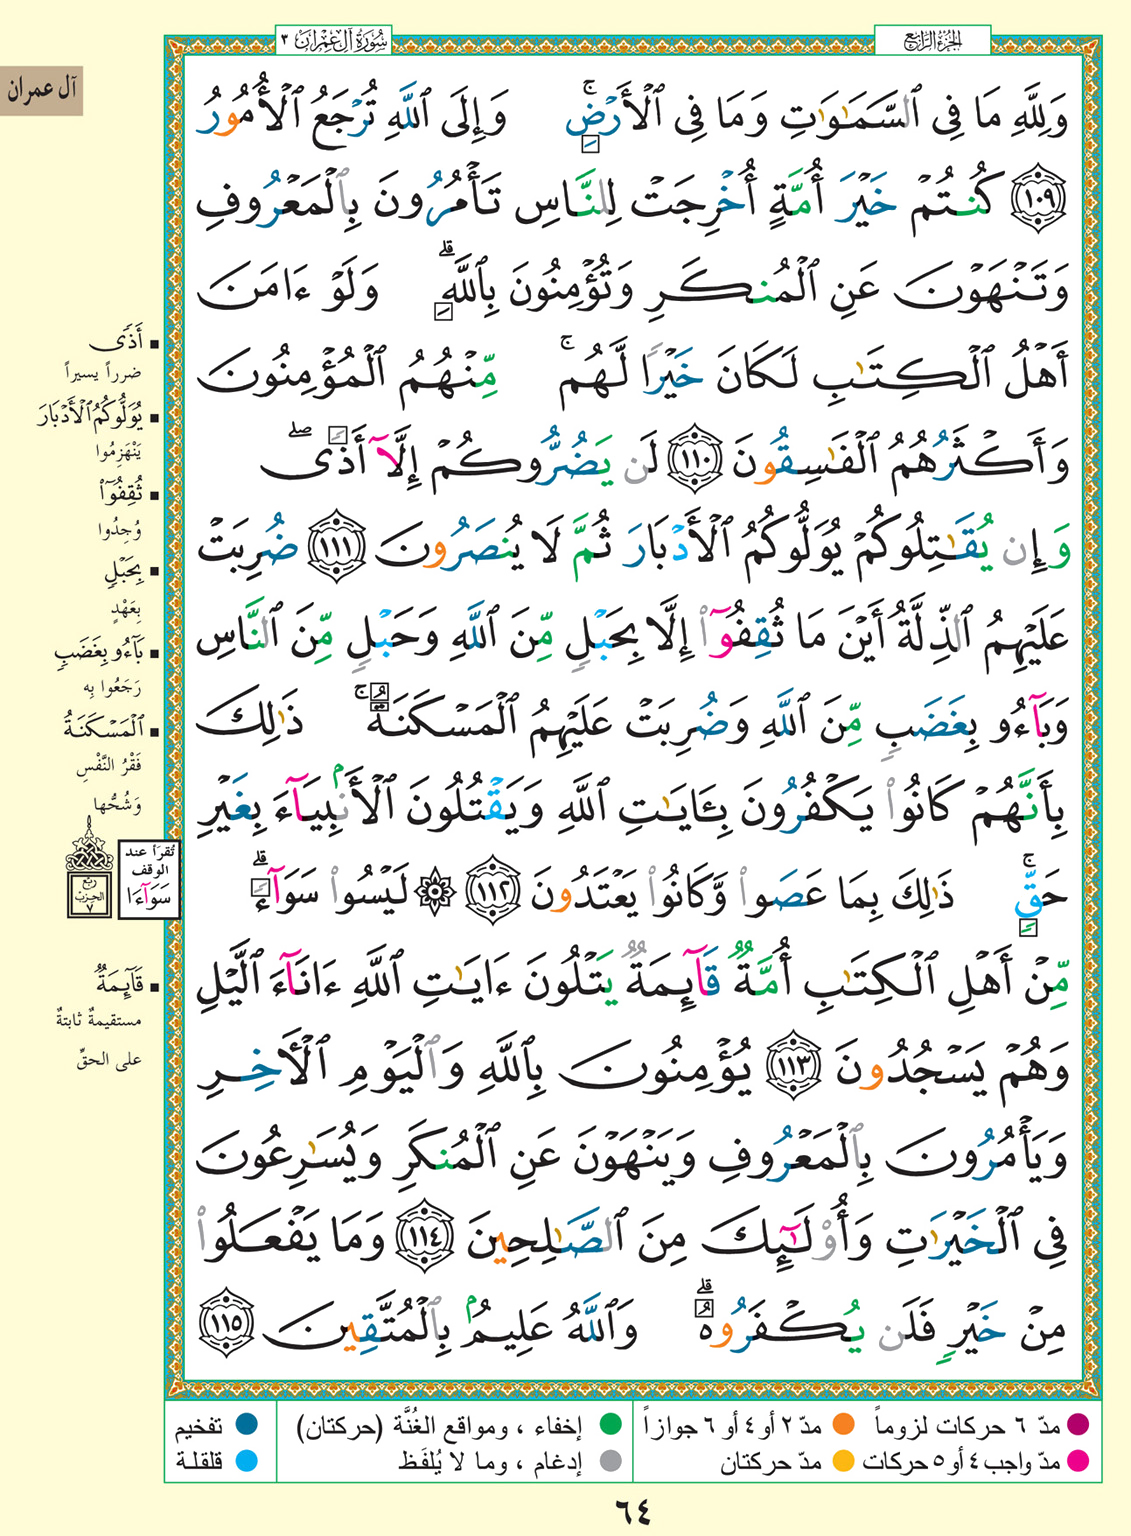 سُورَةُ آلِ عِمْرَانَ ٣
الجُزءُ الرَّابِعُ
آل عمران
وَلِلَّهِ مَا فِي ٱلسَّمَٰوَٰتِ وَمَا فِي ٱلْأَرْضِۚ وَإِلَى ٱللَّهِ تُرْجَعُ ٱلْأُمُورُ
﴿١٠٩﴾ كُنتُمْ خَيْرَ أُمَّةٍ أُخْرِجَتْ لِلنَّاسِ تَأْمُرُونَ بِٱلْمَعْرُوفِ
وَتَنْهَوْنَ عَنِ ٱلْمُنكَرِ وَتُؤْمِنُونَ بِٱللَّهِۗ وَلَوْ ءَامَنَ
أَهْلُ ٱلْكِتَٰبِ لَكَانَ خَيْرًا لَّهُمۚ مِّنْهُمُ ٱلْمُؤْمِنُونَ
وَأَكْثَرُهُمُ ٱلْفَٰسِقُونَ ﴿١١٠﴾ لَن يَضُرُّوكُمْ إِلَّآ أَذًىۖ
وَإِن يُقَٰتِلُوكُمْ يُوَلُّوكُمُ ٱلْأَدْبَارَ ثُمَّ لَا يُنصَرُونَ ﴿١١١﴾ ضُرِبَتْ
عَلَيْهِمُ ٱلذِّلَّةُ أَيْنَ مَا ثُقِفُوٓا۟ إِلَّا بِحَبْلٍ مِّنَ ٱللَّهِ وَحَبْلٍ مِّنَ ٱلنَّاسِ
وَبَآءُو بِغَضَبٍ مِّنَ ٱللَّهِ وَضُرِبَتْ عَلَيْهِمُ ٱلْمَسْكَنَةُۚ ذَٰلِكَ
بِأَنَّهُمْ كَانُوا۟ يَكْفُرُونَ بِـَٔايَٰتِ ٱللَّهِ وَيَقْتُلُونَ ٱلْأَنۢبِيَآءَ بِغَيْرِ
حَقٍّۚ ذَٰلِكَ بِمَا عَصَوا۟ وَّكَانُوا۟ يَعْتَدُونَ ﴿١١٢﴾ ۞ لَيْسُوا۟ سَوَآءًۗ
مِّنْ أَهْلِ ٱلْكِتَٰبِ أُمَّةٌ قَآئِمَةٌ يَتْلُونَ ءَايَٰتِ ٱللَّهِ ءَانَآءَ ٱلَّيْلِ
وَهُمْ يَسْجُدُونَ ﴿١١٣﴾ يُؤْمِنُونَ بِٱللَّهِ وَٱلْيَوْمِ ٱلْأَخِرِ
وَيَأْمُرُونَ بِٱلْمَعْرُوفِ وَيَنْهَوْنَ عَنِ ٱلْمُنكَرِ وَيُسَٰرِعُونَ
فِي ٱلْخَيْرَٰتِ وَأُو۟لَٰٓئِكَ مِنَ ٱلصَّٰلِحِينَ ﴿١١٤﴾ وَمَا يَفْعَلُوا۟
مِنْ خَيْرٍ فَلَن يُكْفَرُوهُۗ وَٱللَّهُ عَلِيمٌۢ بِٱلْمُتَّقِينَ ﴿١١٥﴾
أَذًى
ضرراً يسيراً
يُوَلُّوكُمُ ٱلْأَدْبَارَ
يَنْهَزِمُوا
ثُقِفُوٓا۟
وُجِدُوا
بِحَبْلٍ
بِعَهْدٍ
بَآءُو بِغَضَبٍ
رَجَعُوا بِه
ٱلْمَسْكَنَةُ
فَقْرُ النَّفْسِ
وَشُحُّها
تُقرَأ عند
الوقف
سَوَآءَا
ربع
الحزب
٧
قَآئِمَةٌ
مستقيمةٌ ثابتةٌ
على الحقِّ
مدّ ٦ حركات لزوماً
مدّ ٢ أو ٤ أو ٦ جوازاً
إخفاء ، ومواقع الغُنَّة (حركتان)
تفخيم
مدّ واجب ٤ أو ٥ حركات
مدّ حركتان
إدغام ، وما لا يُلفَظ
قلقلة
٦٤